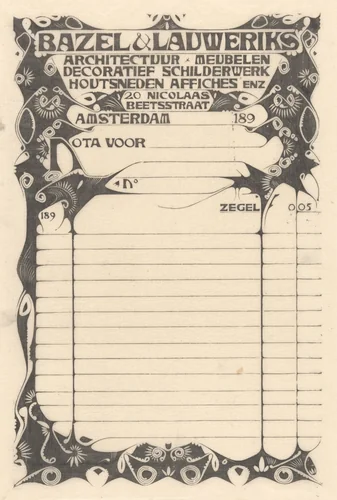 BAZEL & LAUWERIKS
ARCHITECTUUR • MEUBELEN
DECORATIEF SCHILDERWERK
HOUTSNEDEN AFFICHES ENZ
20 NICOLAAS
BEETSSTRAAT
AMSTERDAM 189
NOTA VOOR
No
189 ZEGEL f 0,05